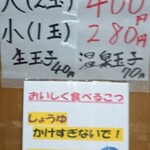 大(2玉) 400円
小(1玉) 280円
生玉子 40円
温泉玉子 70円
おいしく食べるこつ
しょうゆ
かけすぎないで!